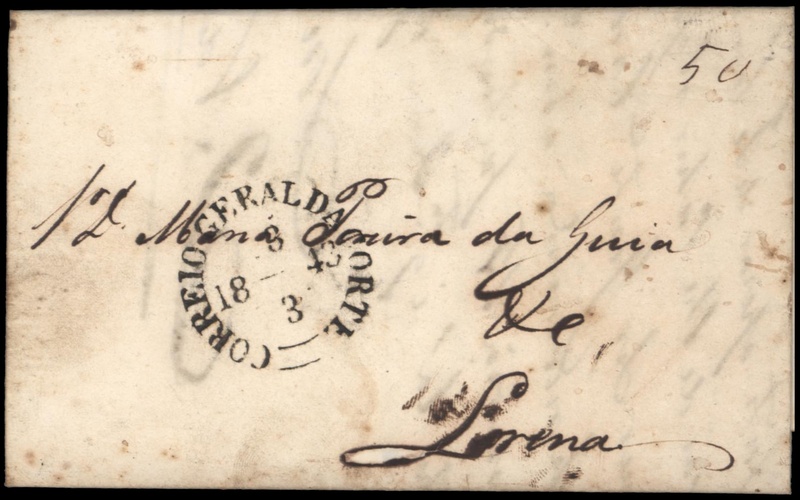 50
CORREIO GERAL DA CORTE
3
18 43
3
Dª Maria Pereira da Guia
&c,
Lorena